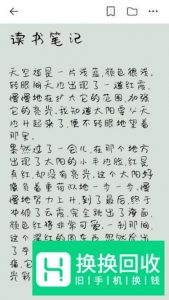 读书笔记
天空还是一片浅蓝,颜色很浅。
转眼间天边出现了一道红霞,
慢慢地在扩大它的范围,加强
它的亮光。我知道太阳要从天
边升起来了,便不转眼地望着
那里。
果然过了一会儿,在那个地方
出现了太阳的小半边脸,红是
真红,却没有亮光。这个太阳好
像负着重荷似地一步一步、慢
慢地努力上升,到了最后,终于
冲破了云霞,完全跳出了海面,
颜色红得非常可爱。一刹那间,
换换回收
旧手机换钱